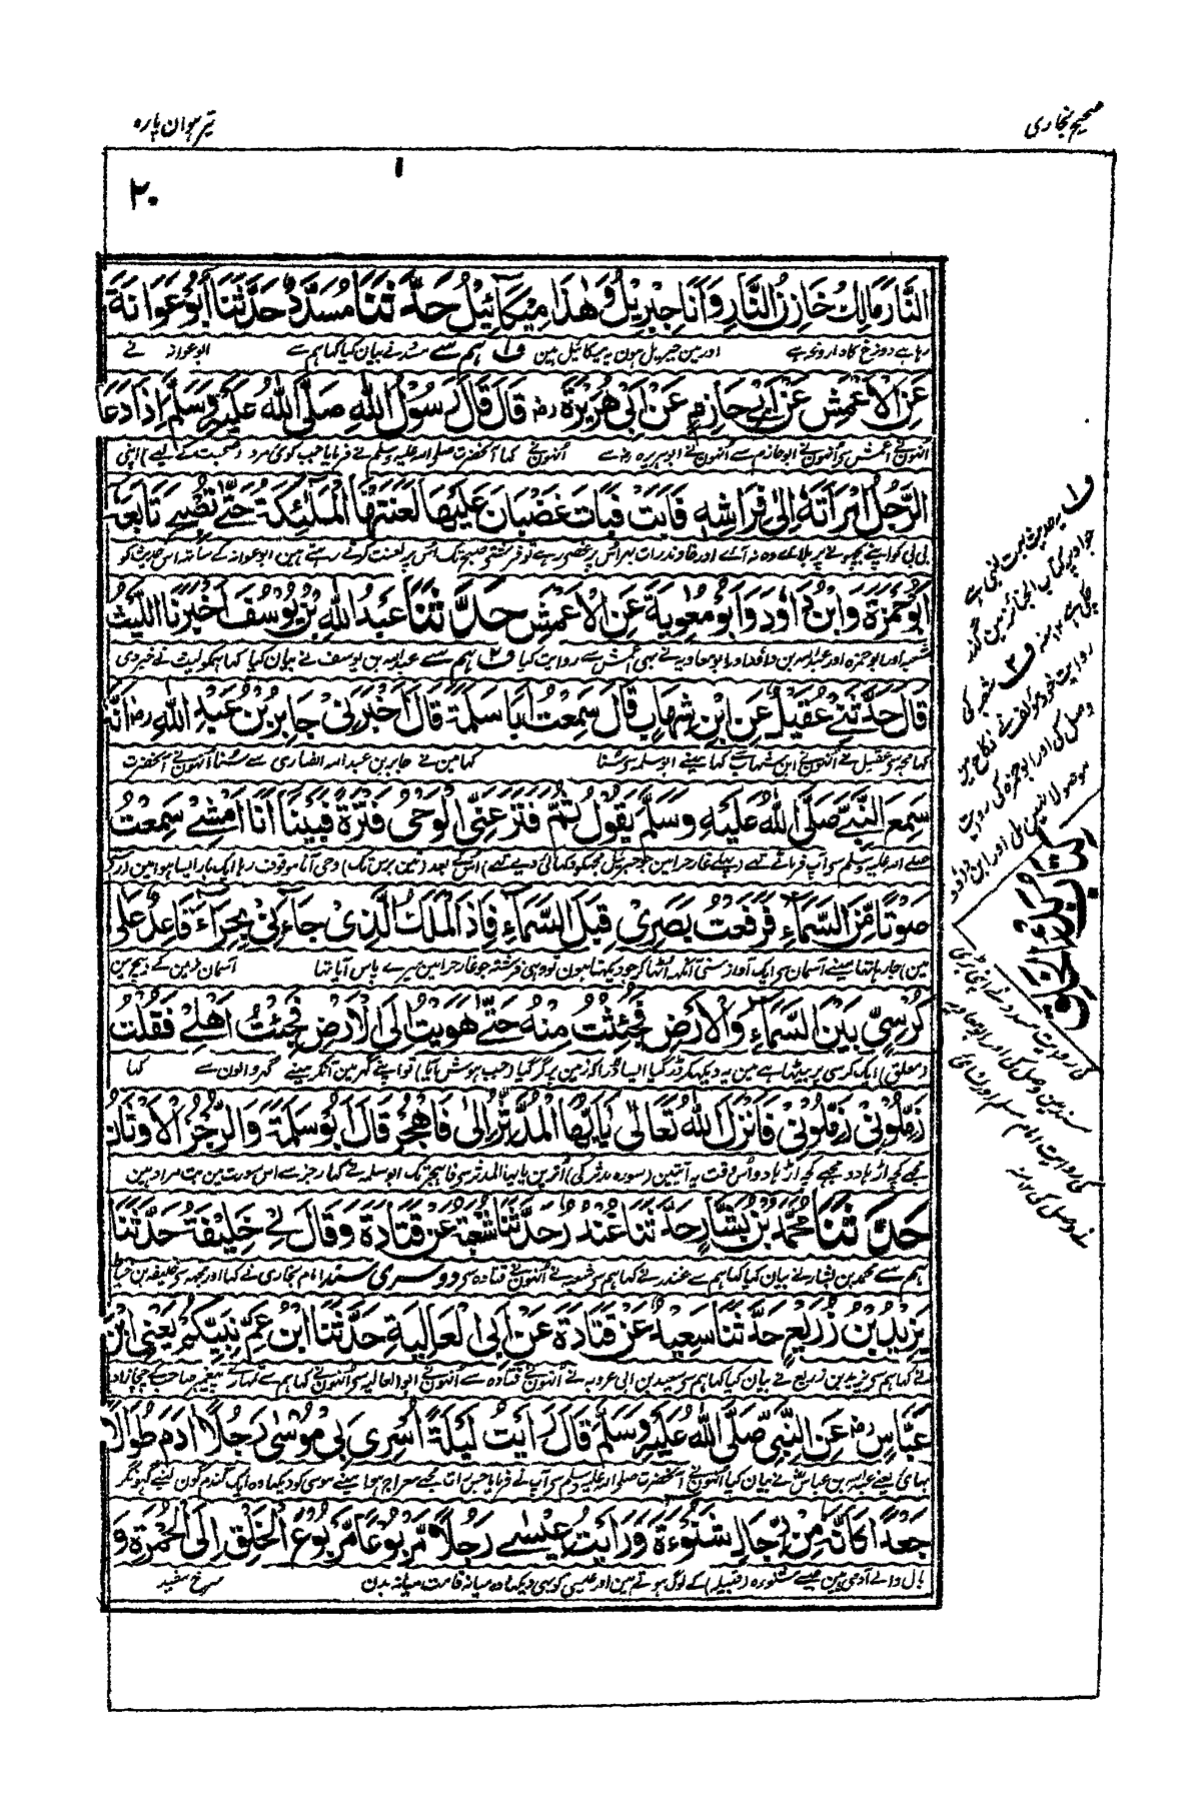 صحیح بخاری
تیرہوان پارہ
۱
۲۰
النَّارَ مَالِكٌ خَازِنُ النَّارِ وَاَنَا جِبْرِيلُ وَهٰذَا مِيْكَآئِيْلُ حَدَّثَنَا مُسَدَّدٌ حَدَّثَنَا اَبُوْ عَوَانَةَ
رہا ہے دوزخ کا داروغہ ہے اور مین جبریل ہون یہ میکائیل ہین ف۱ ہم سے مسدد نے بیان کیا کہا ہم سے ابو عوانہ نے
عَنِ الْاَعْمَشِ عَنْ اَبِيْ حَازِمٍ عَنْ اَبِيْ هُرَيْرَةَ رض قَالَ قَالَ رَسُوْلُ اللّٰهِ صَلَّى اللّٰهُ عَلَيْهِ وَسَلَّمَ اِذَا دَعَا
انہون نے اعمش سے انہون نے ابو حازم سے انہون نے ابوہریرہ رض سے انہون نے کہا آنحضرت صلے اللہ علیہ وسلم نے فرمایا جب کوئی مرد (صحبت کے لیے) اپنی
الرَّجُلُ امْرَاَتَهٗ اِلٰى فِرَاشِهٖ فَاَبَتْ فَبَاتَ غَضْبَانَ عَلَيْهَا لَعَنَتْهَا الْمَلٰٓئِكَةُ حَتّٰى تُصْبِحَ تَابَعَهٗ
بی بی کو اپنے بچھونے پر بلائے وہ نہ آئے اور خاوند رات بہر اس پر غصے رہے تو فرشتے صبح تک اس پر لعنت کرتے رہتے ہین ابو عوانہ کے ساتھ اس حدیث کو
اَبُوْ حَمْزَةَ وَابْنُ دَاوٗدَ وَاَبُوْ مُعٰوِيَةَ عَنِ الْاَعْمَشِ حَدَّثَنَا عَبْدُ اللّٰهِ بْنُ يُوْسُفَ اَخْبَرَنَا اللَّيْثُ
شعبہ اور ابو حمزہ اور عبداللہ بن داؤد اور ابو معاویہ نے بھی اعمش سے روایت کیا ف۲ ہم سے عبداللہ بن یوسف نے بیان کیا کہا ہمکو لیث نے خبر دی
قَالَ حَدَّثَنِيْ عُقَيْلٌ عَنِ ابْنِ شِهَابٍ قَالَ سَمِعْتُ اَبَا سَلَمَةَ قَالَ اَخْبَرَنِيْ جَابِرُ بْنُ عَبْدِ اللّٰهِ رض اَنَّهٗ
کہا مجھ سے عقیل نے انہون نے ابن شہاب سے کہا مینے ابو سلمہ سے سنا کہا مین نے جابر بن عبداللہ انصاری سے سنا انہون نے آنحضرت
سَمِعَ النَّبِيَّ صَلَّى اللّٰهُ عَلَيْهِ وَسَلَّمَ يَقُوْلُ ثُمَّ فَتَرَ عَنِّى الْوَحْىُ فَتْرَةً فَبَيْنَا اَنَا اَمْشِيْ سَمِعْتُ
صلے اللہ علیہ وسلم سے آپ فرماتے تھے (پہلے غار حرا مین جو جبریل مجھکو دکھائی دیے تھے) اسکے بعد (تین برس تک) وحی آنا موقوف رہا ایک بار ایسا ہوا مین
صَوْتًا مِّنَ السَّمَآءِ فَرَفَعْتُ بَصَرِىْ قِبَلَ السَّمَآءِ فَاِذَا الْمَلَكُ الَّذِىْ جَآءَنِىْ بِحِرَآءَ قَاعِدٌ عَلٰى
مین جا رہا تھا مینے آسمان سے ایک آواز سنی آنکھ اٹھا کر جو دیکھتا ہون تو وہی فرشتہ جو غار حرا مین میرے پاس آیا تھا آسمان زمین کے بیچ مین
كُرْسِىٍّ بَيْنَ السَّمَآءِ وَالْاَرْضِ فَجُئِثْتُ مِنْهُ حَتّٰى هَوَيْتُ اِلَى الْاَرْضِ فَجِئْتُ اَهْلِىْ فَقُلْتُ
(معلق) ایک کرسی پر بیٹھا ہے مین یہ دیکھکر ڈر گیا ایسا ڈرا کہ زمین پر گر گیا (جب ہوش آیا) تو اپنے گھر مین آنکر مینے گھر والون سے کہا
زَمِّلُوْنِىْ زَمِّلُوْنِىْ فَاَنْزَلَ اللّٰهُ تَعَالٰى يٰاَيُّهَا الْمُدَّثِّرُ اِلٰى فَاهْجُرْ قَالَ اَبُوْ سَلَمَةَ وَالرُّجْزُ الْاَوْثَانُ
مجھے کچھ اڑھا دو مجھے کچھ اڑھا دو اس وقت یہ آیتین (سورہ مدثر کی) اترین یا ایہا المدثر سے فاہجر تک ابو سلمہ نے کہا رجز سے اس سورت مین بت مراد ہین
حَدَّثَنَا مُحَمَّدُ بْنُ بَشَّارٍ حَدَّثَنَا غُنْدَرٌ حَدَّثَنَا شُعْبَةُ عَنْ قَتَادَةَ وَقَالَ لِىْ خَلِيْفَةُ حَدَّثَنَا
ہم سے محمد بن بشار نے بیان کیا کہا ہم سے غندر نے کہا ہم سے شعبہ نے انہون نے قتادہ سے دوسری سند امام بخاری نے کہا اور مجھ سے خلیفہ بن خیاط
يَزِيْدُ بْنُ زُرَيْعٍ حَدَّثَنَا سَعِيْدٌ عَنْ قَتَادَةَ عَنْ اَبِى الْعَالِيَةِ حَدَّثَنَا ابْنُ عَمِّ نَبِيِّكُمْ يَعْنِى ابْنَ
نے کہا ہم سے یزید بن زریع نے بیان کیا کہا ہم سے سعید بن ابی عروبہ نے انہون نے قتادہ سے انہون نے ابو العالیہ سے انہون نے کہا ہم سے تمہارے پیغمبر صاحب کے چچازاد
عَبَّاسٍ رض عَنِ النَّبِيِّ صَلَّى اللّٰهُ عَلَيْهِ وَسَلَّمَ قَالَ رَاَيْتُ لَيْلَةَ اُسْرِىَ بِىْ مُوْسٰى رَجُلًا اٰدَمَ طُوَالًا
بھائی یعنے عبداللہ بن عباس نے بیان کیا انہون نے آنحضرت صلے اللہ علیہ وسلم سے آپ نے فرمایا جس رات مجھے معراج ہوا مینے موسی کو دیکھا وہ ایک گندم گون لنبے گھونگر
جَعْدًا كَاَنَّهٗ مِنْ رِّجَالِ شَنُوْءَةَ وَرَاَيْتُ عِيْسٰى رَجُلًا مَّرْبُوْعًا مَّرْبُوْعَ الْخَلْقِ اِلَى الْحُمْرَةِ وَ
بال والے آدمی ہین جیسے شنوءہ (قبیلہ) کے لوگ ہوتے ہین اور عیسی کو بھی دیکھا وہ میانہ قامت میانہ بدن سرخ سفید
ف۱ یہ حدیث بہت لنبی ہے
جو اوپر کتاب الجنائز مین گذر
چکی ہے ۱۲ منہ ف۲ شعبہ کی
روایت خود مؤلف نے نکاح مین
وصل کی اور ابو حمزہ کی روایت
موصولا نہین ملی اور ابن داؤد
کتاب بدء الخلق
کی روایت مسدد نے اپنی بڑی
مسند مین وصل کی اور ابو معاویہ
کی روایت امام مسلم اور نسائی
نے وصل کی ۱۲ منہ